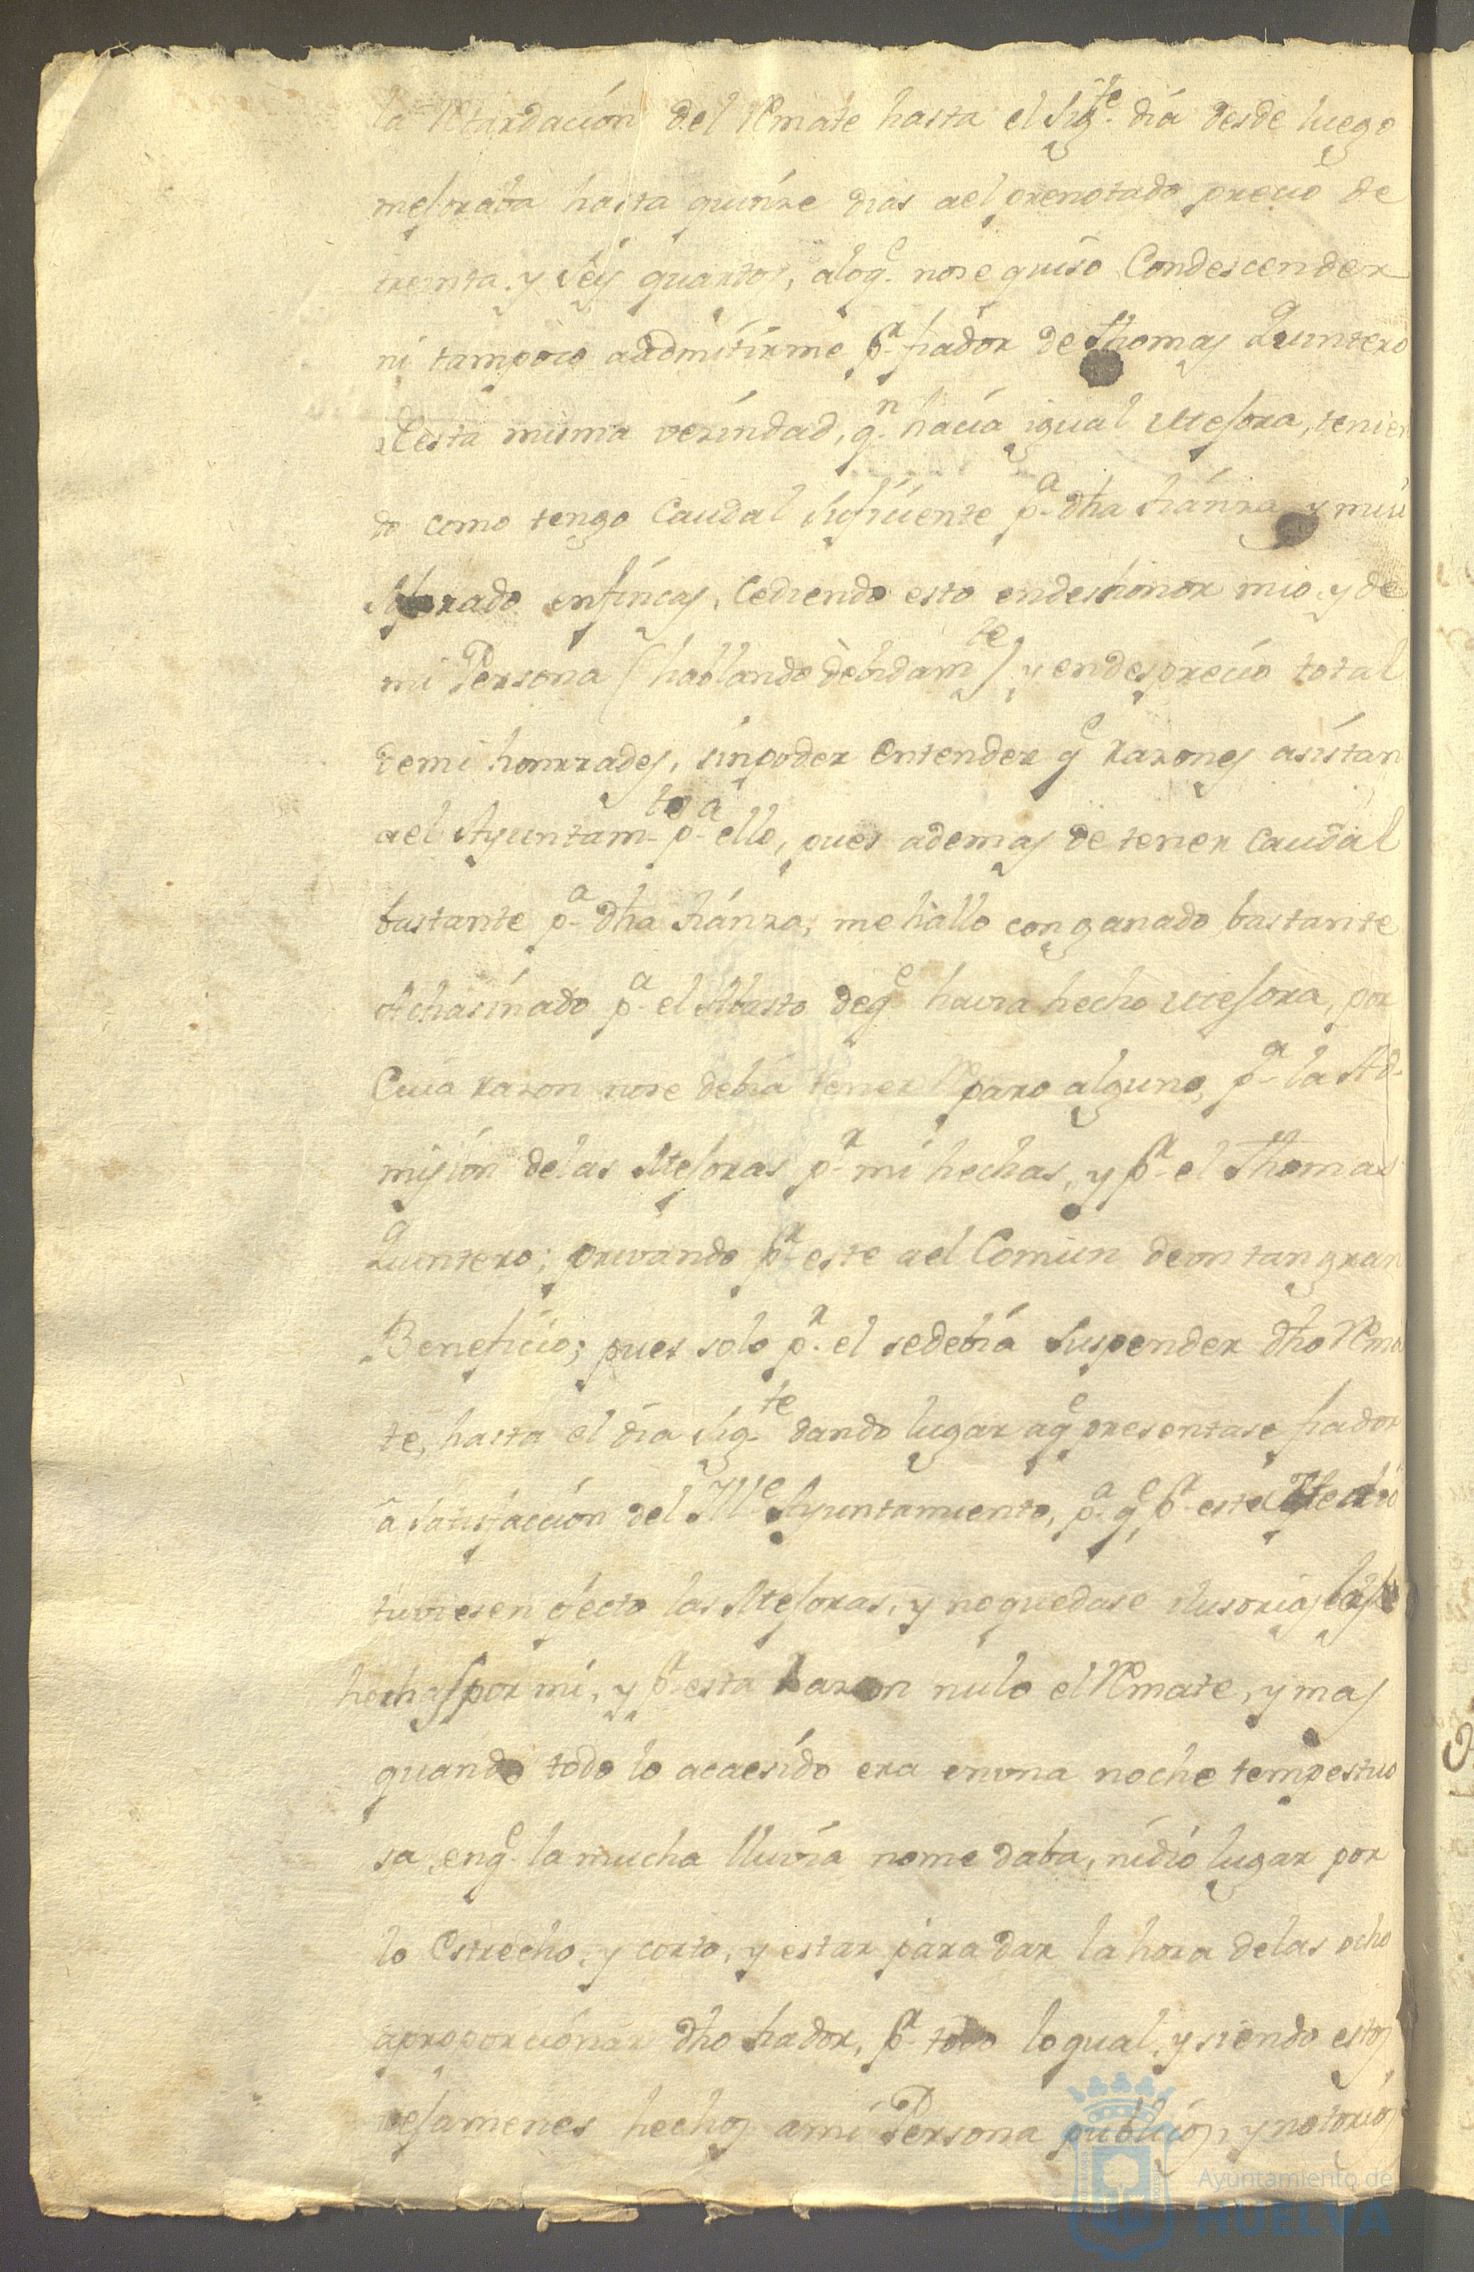 la Retardación del Remate hasta el Sigte. día desde luego
mejoraba hasta quinze dias ael prenotado precio de
treinta y seis quartos, aloqe. nose quiso Condescender
ni tampoco addmitirme pr. fiador de Thomas Quintero
de esta misma vezindad, qn. hacía igual Mejora, tenien
do como tengo Caudal suficiente pa. dha fiánza, y mui
enfincas, Cediendo esto endeshonor mio, y de
mi Persona (hablando dèbidamte) y endesprecio total
demi honrrades, sinpoder Entender qe razones asístan
ael Ayuntamto. pa. ello, pues ademas de tener Caudal
bastante pa. dha fiánza, me hallo con ganado bastante
Achasinado pa. el Abasto deqe. havia hecho Mejora, por
Cuia razon nose debía tener Reparo alguno, pa. la Ad-
misión delas Mejoras pr. mi hechas, y pr. el Thomas
Quintero; privando pr. este ael Comun deun tan gran
Beneficio; pues solo pr. el sedebía Suspender dho Rema
te, hasta el día sigte. dando lugar aqe presentase fiador
â satisfacción del Ille Ayuntamiento, pa. qe pr. este
tuviesen efecto las Mejoras, y noquedase ilusorias las
hechas por mi, y pr. esta Razon nulo el Remate, y mas
quando todo lo acaesido era enuna noche tempestuo
sa, enqe. la mucha lluvia nome daba, nidió lugar por
lo Estrecho, y corto, y estar para dar la hora delas ocho
aproporciónar dho fiador, pr. todo loqual, y siendo estos
vejamenes hechos ami Persona publicos, y notorios
Ayuntamiento de
HUELVA